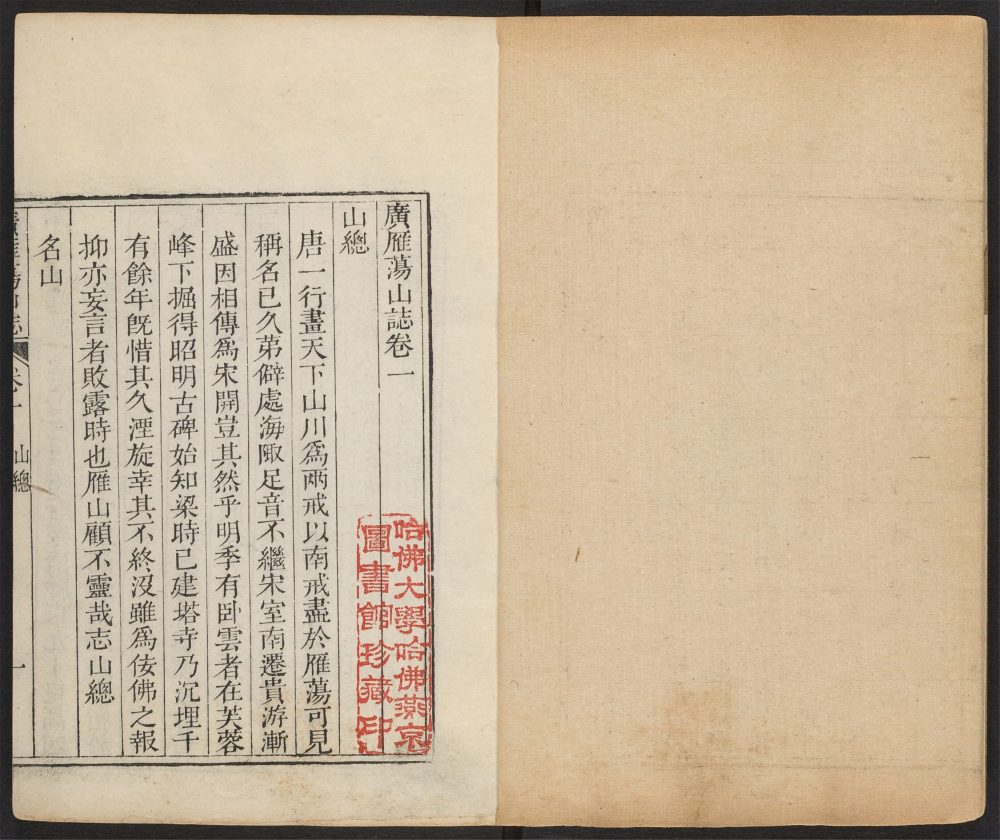 廣雁蕩山誌卷一
山總
唐一行畫天下山川爲兩戒以南戒盡於雁蕩可見
稱名已久苐僻處海陬足音不繼宋室南遷貴游漸
盛因相傳爲宋開豈其然乎明季有卧雲者在芙蓉
峰下掘得昭明古碑始知梁時已建塔寺乃沉埋千
有餘年旣惜其久湮旋幸其不終沒雖爲佞佛之報
抑亦妄言者敗露時也雁山顧不靈哉志山總
名山
廣雁蕩山誌
卷一
山總
一
哈佛大學哈佛燕京
圖書館珍藏印